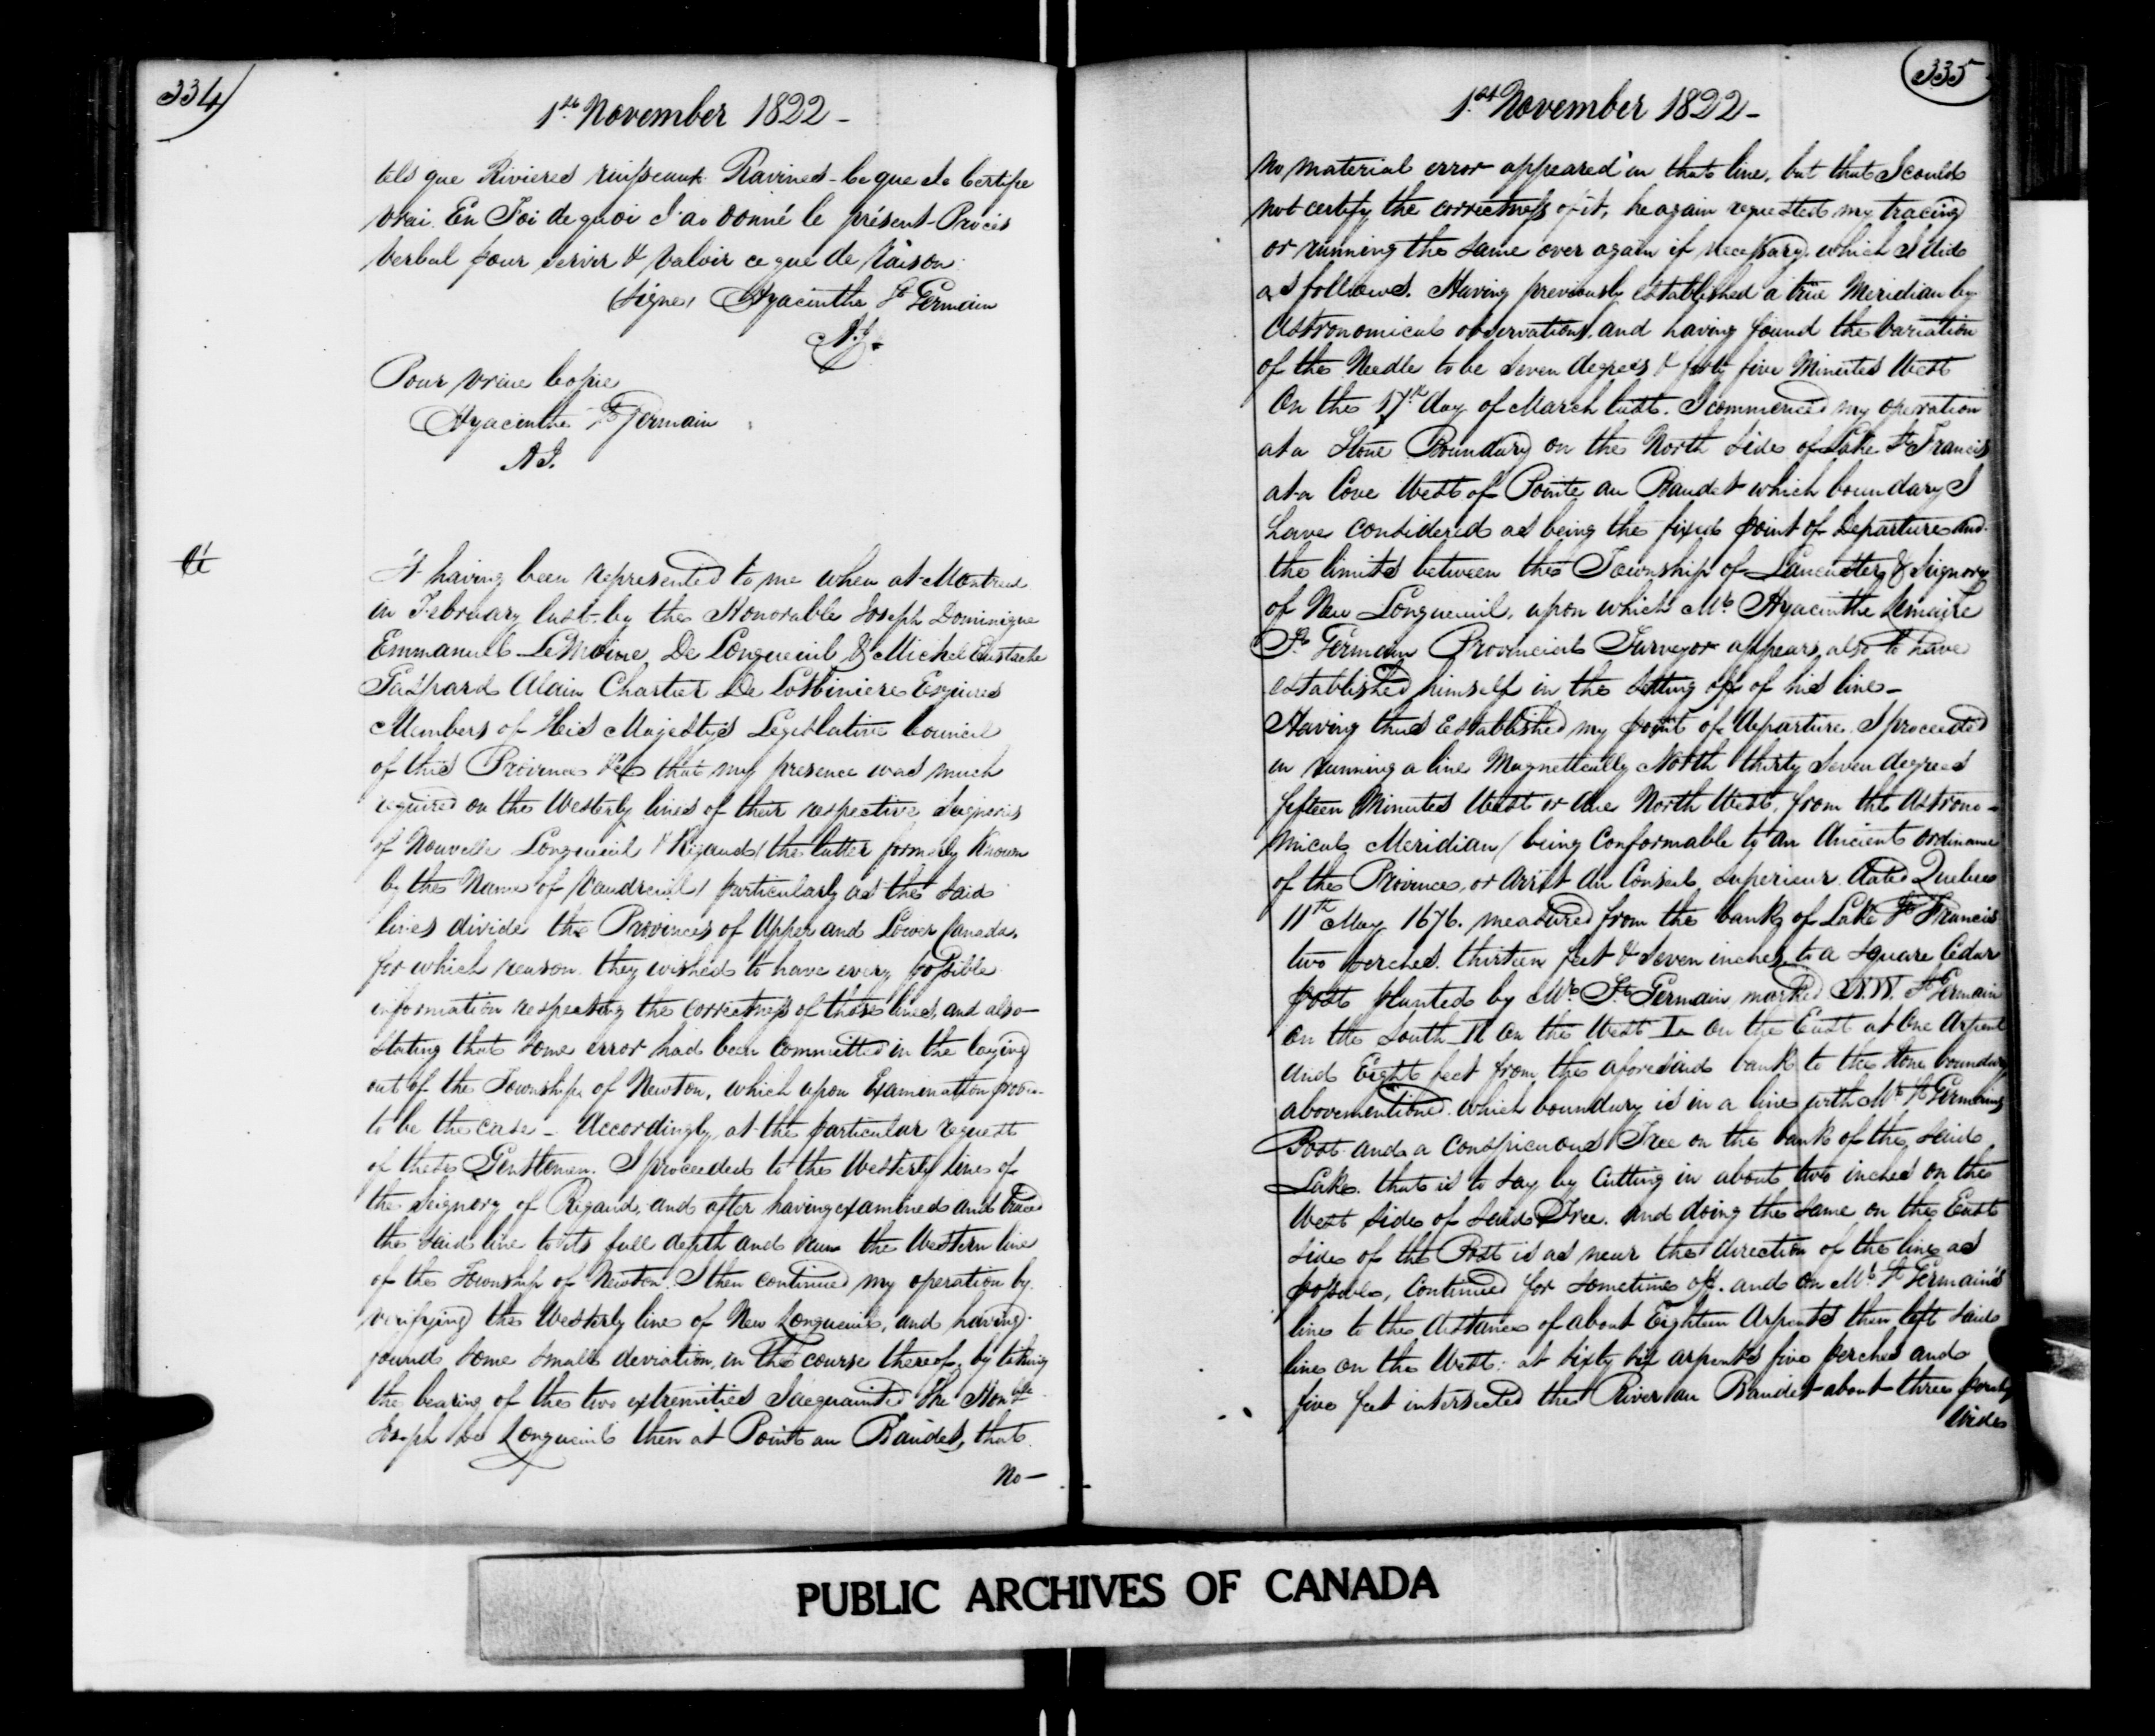 334
1st November 1822 -
tels que Rivieres ruisseaux Ravines - Ce que Je Certifie
vrai. En Foi de quoi J'ai donné le présent Procès
Verbal pour servir & valoir ce que de Raison.
(Signé) Hyacinthe St Germain
A.J.
Pour vraie Copie
Hyacinthe St Germain
A J.
It having been represented to me when at Montreal
in February last by the Honorable Joseph Dominique
Emmanuel LeMoine De Longueuil & Michel Eustache
Gaspard Alain Chartier De Lotbiniere Esquires
Members of His Majesty's Legislative Council
of this Province &ca that my presence was much
required on the Westerly lines of their respective Seigniories
of Nouvelle Longueuil & Rigaud (the latter formerly Known
by the Name of Vaudreuil) particularly as the said
lines divide the Provinces of Upper and Lower Canada,
for which reason they wished to have every possible
information respecting the correctness of those lines, and also -
stating that some error had been Committed in the laying
out of the Township of Newton, which upon Examination proves
to be the case - Accordingly, at the particular request
of these Gentlemen. I proceeded to the Westerly line of
the Seignory of Rigaud, and after having examined and traced
the said line to its full depth and run the Western line
of the Township of Newton. I then continued my operation by
verifying the Westerly line of New Longueuil, and having
found some small deviation, in the course thereof, by taking
the bearing of the two extremities I acquainted the Honble
Joseph De Longueuil then at Point au Baudet, that
No -
335
1st November 1822 -
no material error appeared in that line, but that I could
not certify the correctness of it, he again requested my tracing
or running the same over again if necessary, which I did
as follows. Having previously established a true Meridian by
Astronomical observations, and having found the Variation
of the Needle to be seven degrees & forty five Minutes West
On the 17th day of March last. I commenced my operation
at a Stone Boundary on the North side of Lake St Francis
at a Cove West of Pointe au Baudet which boundary I
have considered as being the fixed point of Departure and
the limits between the Township of Lancaster & Seignory
of New Longueuil, upon which Mr Hyacinthe Lemaire
St Germain Provincial Surveyor appears also to have
established himself in the setting off of his line -
Having thus Established my point of Departure. I proceeded
in running a line Magnetically North thirty seven degrees
fifteen Minutes West or due North West, from the Astrono-
mical Meridian (being Conformable to an Ancient Ordinance
of the Province, or Arrêt du Conseil Superieur dated Quebec
11th May 1676. measured from the bank of Lake St Francis
two perches thirteen feet & seven inches to a square Cedar
post planted by Mr St Germain, marked N.W. St Germain
on the South N on the West L on the East at One Arpent
and Eight feet from the aforesaid bank to the stone boundary
abovementioned. which boundary is in a line with Mr St Germains
Post and a Conspicuous Tree on the bank of the said
Lake. that is to say by Cutting in about two inches on the
West side of said Tree. and doing the same on the East
side of the Post is as near the direction of the line as
possible, Continued for sometime off. and on Mr St Germain's
line to the distance of about Eighteen Arpents then left said
line on the West: at sixty six arpents five perches and
five feet intersected the River au Baudet about three perches
wide
PUBLIC ARCHIVES OF CANADA